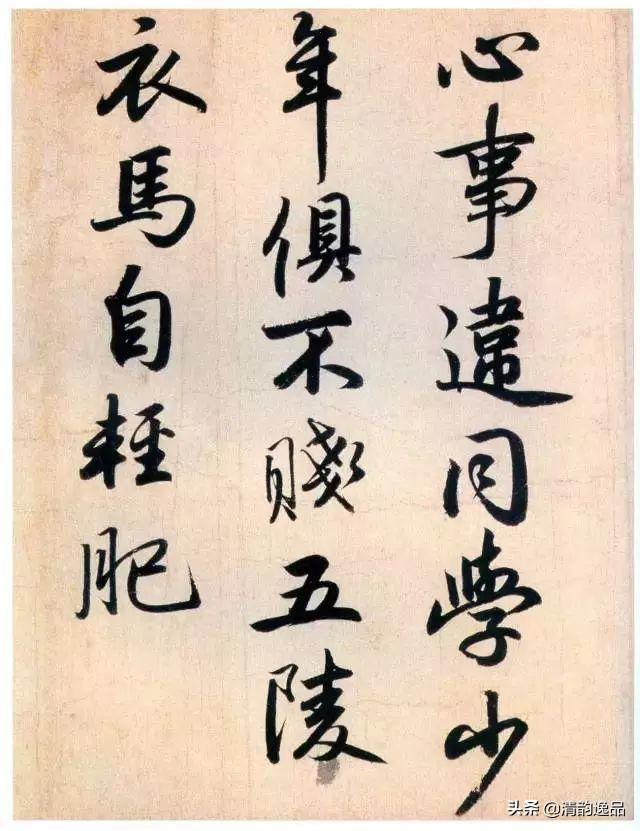 心事違同學少
年俱不賤五陵
衣馬自輕肥
头条 @清韵逸品